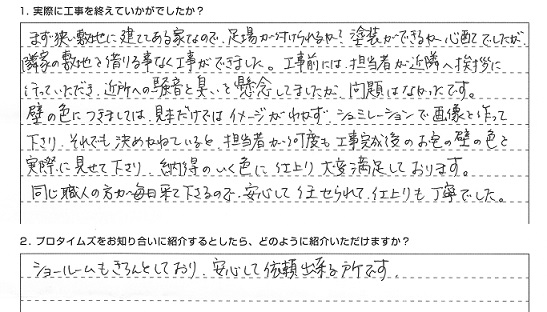 1. 実際に工事を終えていかがでしたか？
まず狭い敷地に建ててある家なので、足場が付けられるか？塗装ができるか心配でしたが、
隣家の敷地を借りる事なく工事ができました。工事前には、担当者が近隣へ挨拶に
行っていただき、近所への騒音と臭いを懸念してましたが、問題はなかったです。
壁の色につきましては、見本だけではイメージがわかず、シュミレーションで画像を作って
下さり、それでも決めかねていると、担当者が何度も工事完成後のお宅の壁の色を
実際に見せて下さり、納得のいく色に仕上り大変満足しております。
同じ職人の方が毎日来て下さるので、安心して任せられて、仕上りも丁寧でした。
2. プロタイムズをお知り合いに紹介するとしたら、どのように紹介いただけますか？
ショールームもきちんとしており、安心して依頼出来る所です。